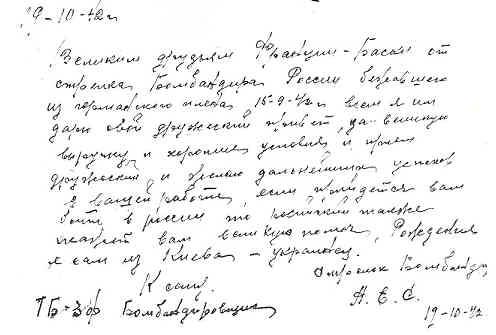 19-10-42 г
Великим друзьям Франции - Басан от
стрелка Бомбандира России бежавшего
из германского плена 15-9-42 г всем я им
дарю свой дружеский привет, за
выручку и хорошие условия и прием
дружеский и желаю дальнейших успехов
в вашей работе, если придется вам
быть в России то также
вам великую помощь, Рождения
я сам из Киева - украинец.
К сему. Стрелок Бомбандир
ТБ-3 Бомбандировщик А. Е. С.
19-10-42